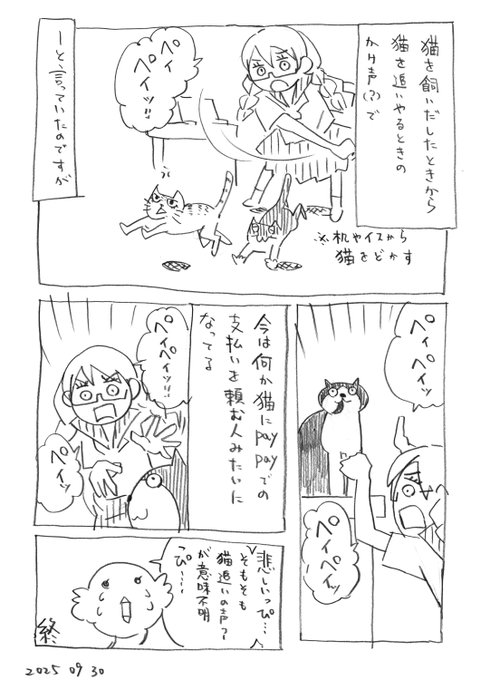 猫を飼いだしたときから
猫を追いやるときの
かけ声(?)で
※机やイスから
猫をどかす
ペイ
ペイッ!!
ーと、言っていたのですが
ペイペイッ
ペイペイッ
今は何か猫に
pay payでの
支払いを頼む人みたいに
なってる
ペイペイッ!!
ペイッ
悲しいっぴ…
そもそも
猫追いの声?
が意味不明
っぴ…
終
2025 09 30